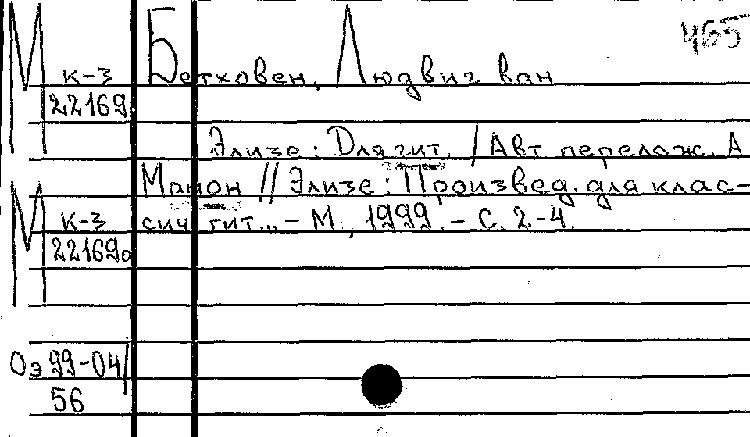 465
М к-3 Бетховен, Людвиг ван
22169
Элизе: Для гит. / Авт. перелож. А.
Манон // Элизе: Произвед. для клас-
М к-3 сич. гит. – М., 1999. – С. 2-4.
22169а
Оэ 99-04/
56